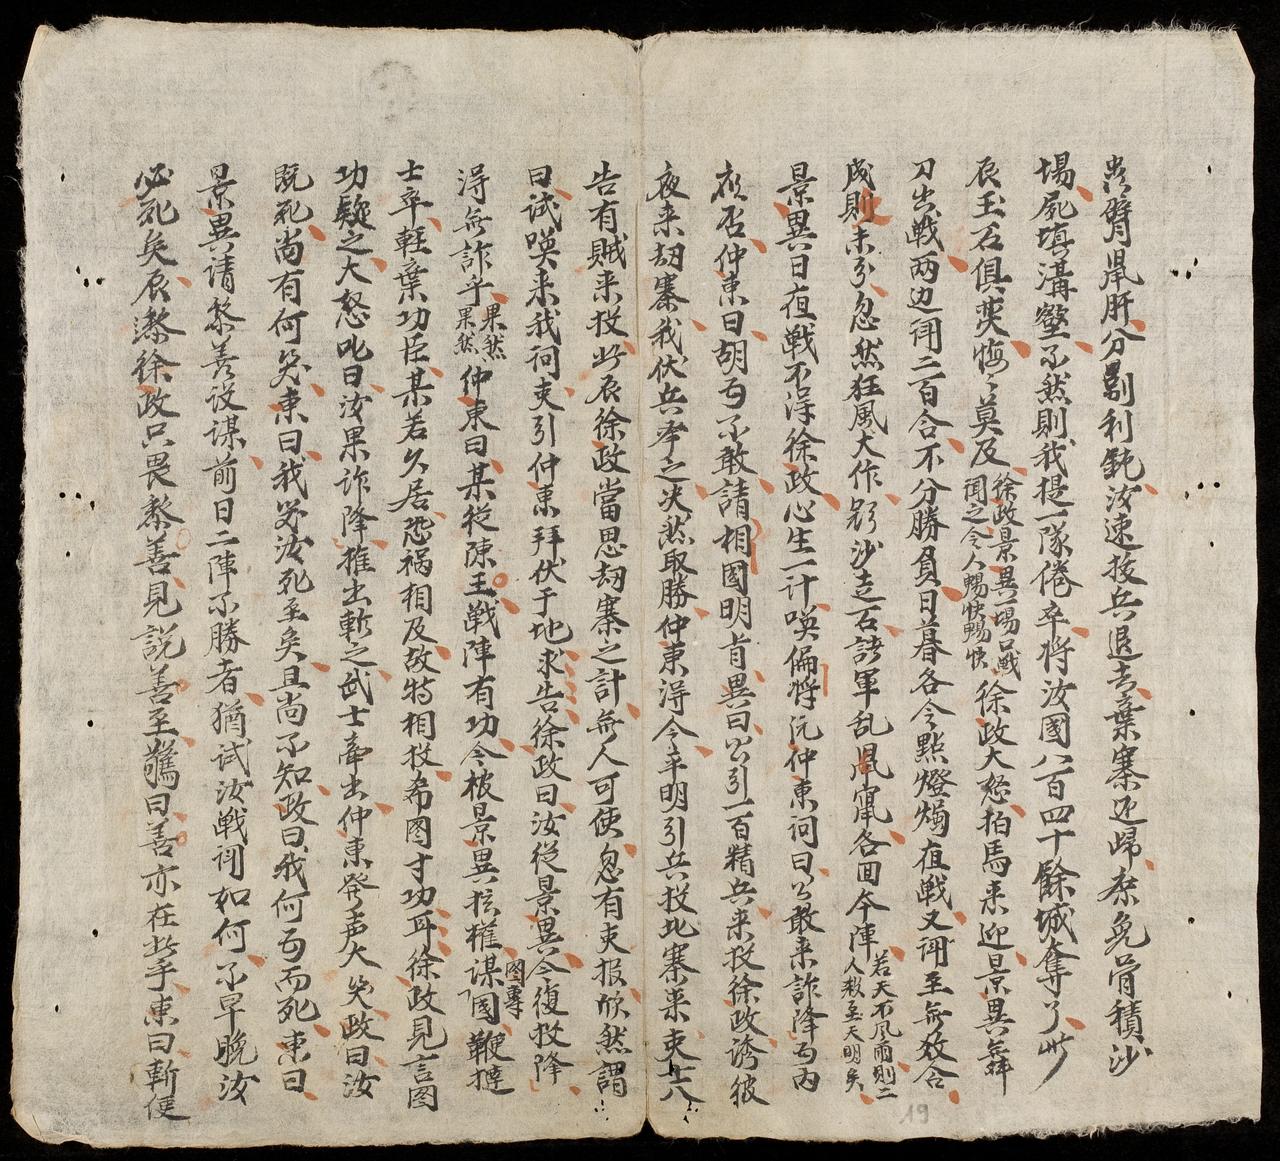 臂鼠肝分剔利鈍汝速投兵退去棄寨迯歸庶免骨積沙
場屍填溝壑不然則我提一隊倦卒將汝國八百四十餘城奪了此
辰玉石俱焚悔々莫及徐政景異一場口戰聞之令人暢快暢快徐政大怒拍馬来迎景異舞
刀出戰两边闘二百合不分勝負日暮各令點燈燭夜戰又闘至無效合
成則未分忽然狂風大作沙走石諸軍乱各回本陣若天不風雨則二人殺至天明矣
景異曰夜戰不得徐政心生一計喚偏將沅仲東詞曰公敢来詐降丐内
否仲東曰胡丐不敢請相國明肯異曰公引一百精兵来投徐政誘彼
夜来刼寨我伏兵之决然取勝仲東得令平明引兵投北寨来吏士八
告有賊来投此辰徐政當思刼寨之計無人可使忽有吏报欣然謂
曰試喚来我詞吏引仲東拜伏于地求告徐政曰汝從景異今復投降
得無詐乎果然果然仲東曰某從陳王戰陣有功今被景異權謀國鞭撻
士卒輕棄功臣某若久居恐禍相及故特相投希图寸功耳徐政見言图
功疑之大怒叱曰汝果詐降推出斬之武士牽出仲東發声大笑政曰汝
既死尚有何笑東曰我笑汝死至矣且尚不知政曰我何丐而死東曰
景異請黎善设謀前日二陣不勝者猶試汝戰闘如何不早晚汝
必死矣辰徐政只畏黎善見説善至驚曰善亦在此乎東曰斬便
19